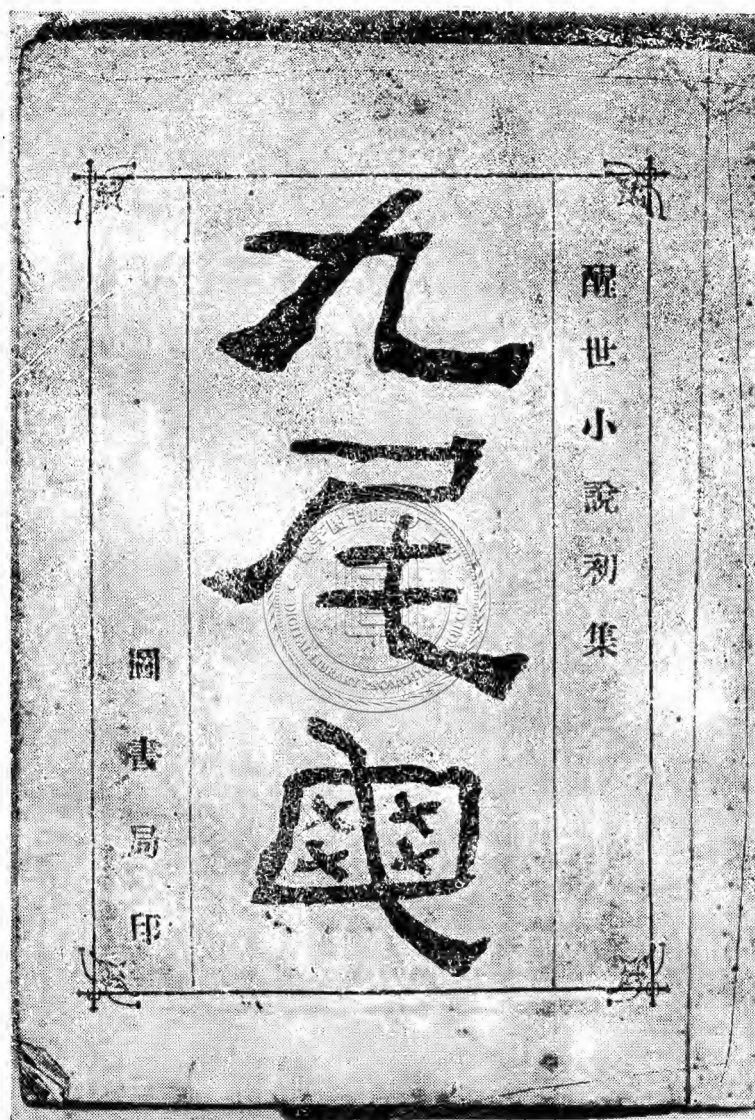 醒世小說初集
九尾龜
圖書局印
DIGITAL LIBRARY